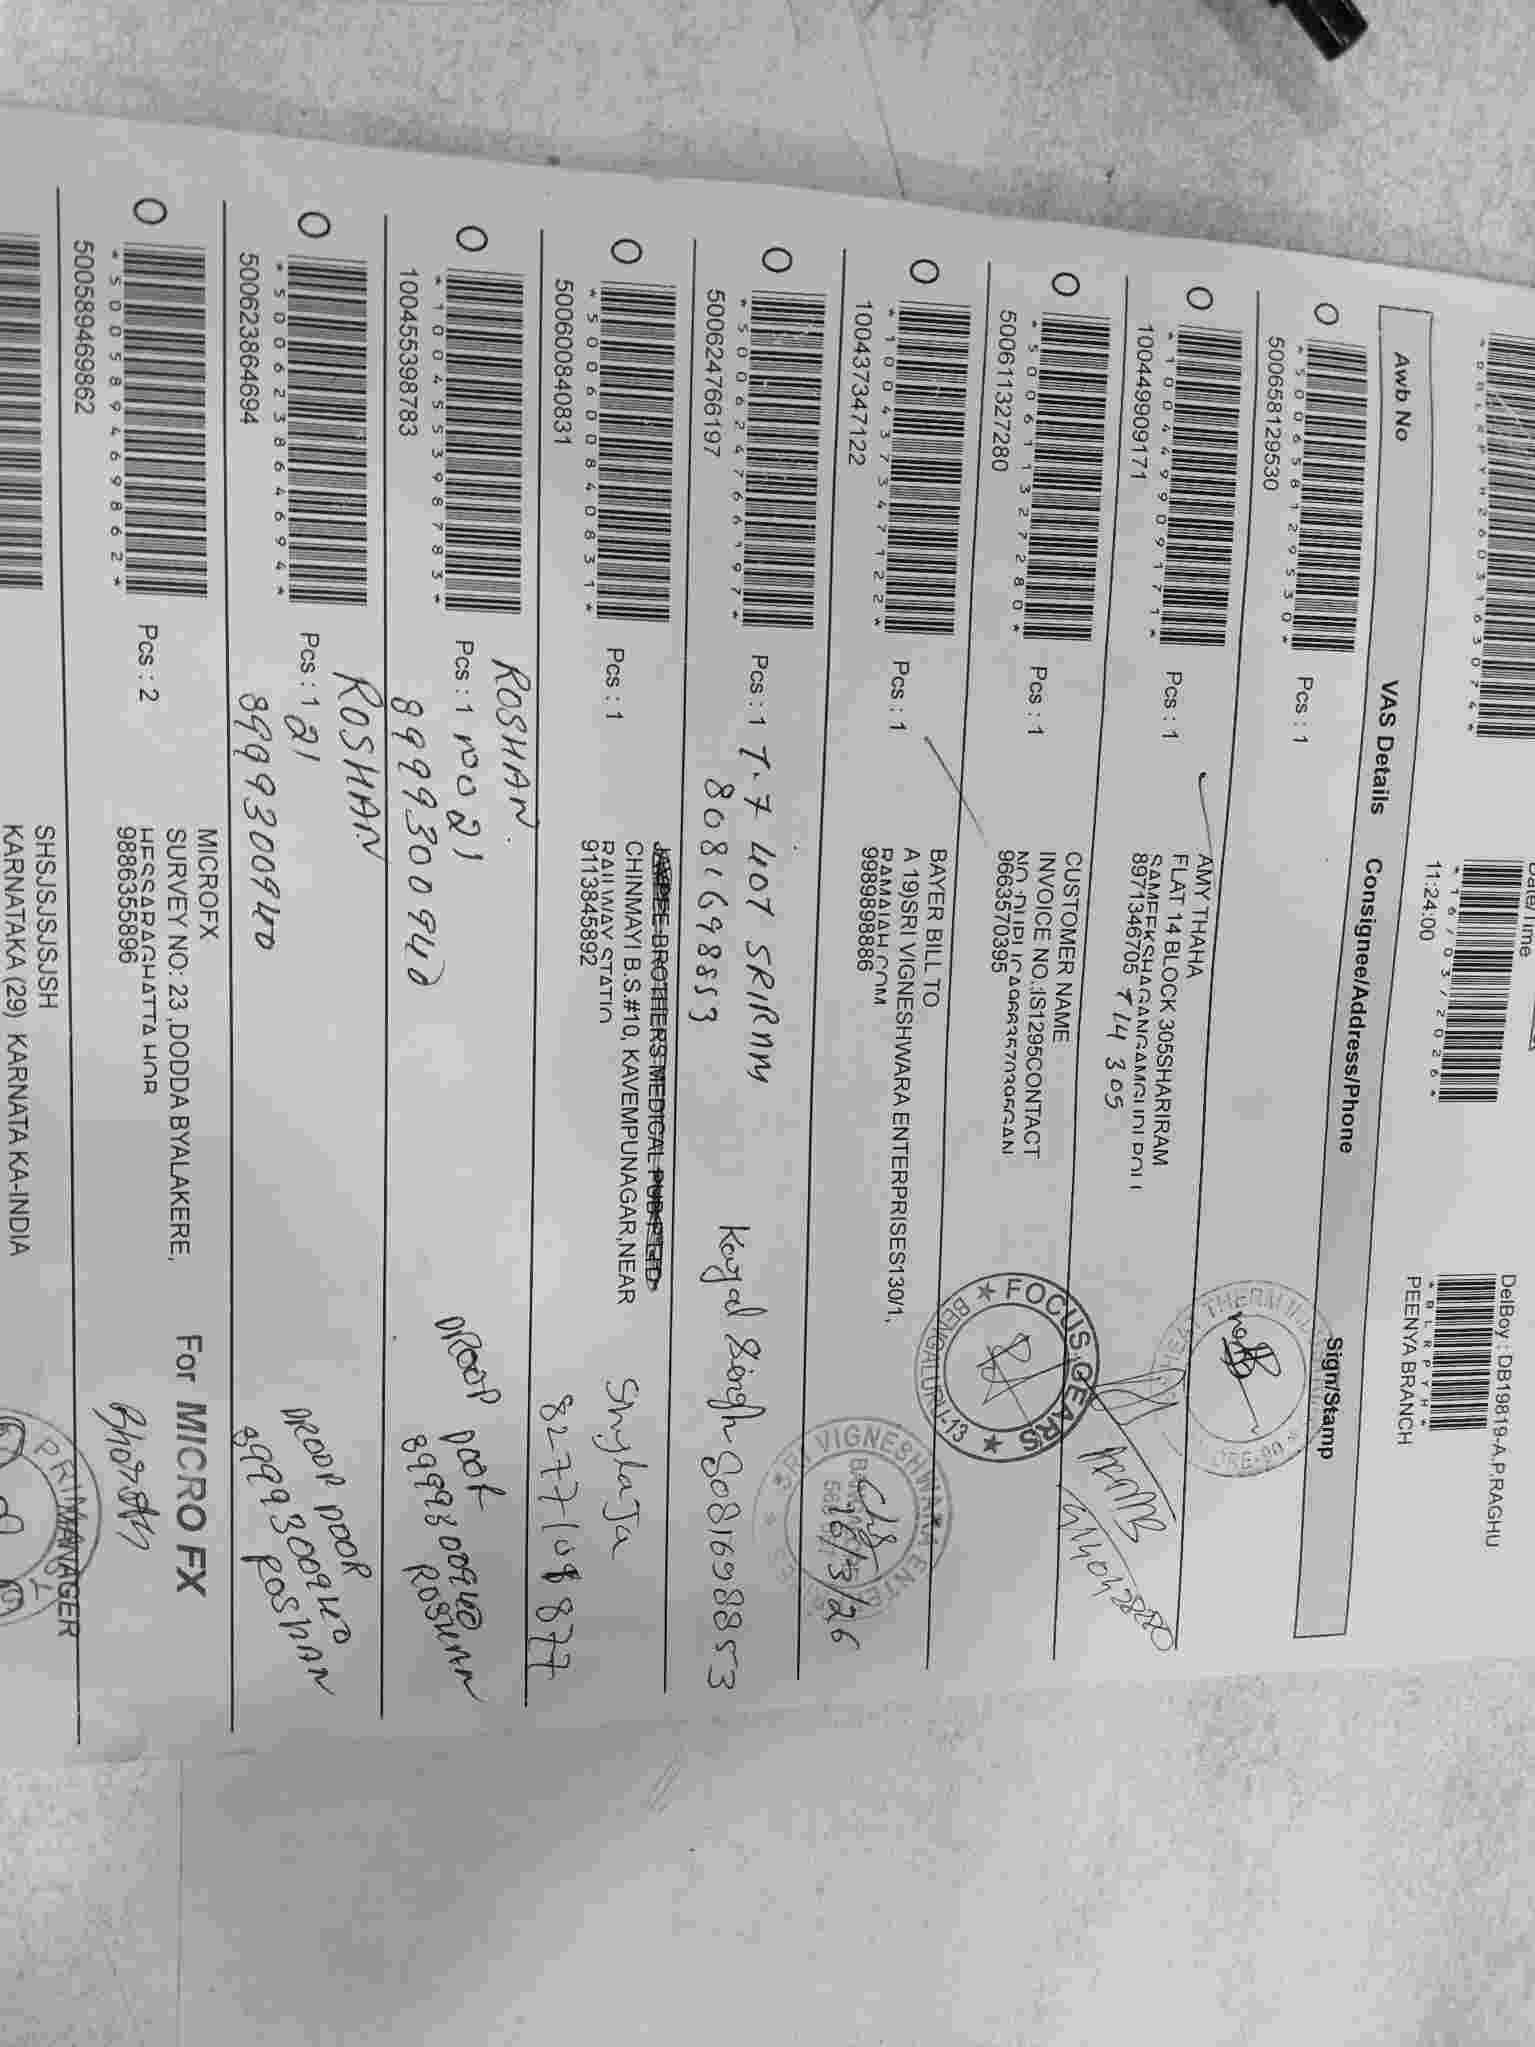 *BLRPYH26031630744*
Date/Time
*16/03/2026*
11:24:00
DelBoy : DB19819-A.P.RAGHU
*BLRPYH*
PEENYA BRANCH
Awb No VAS Details Consignee/Address/Phone Sign/Stamp
*500658129530*
500658129530
Pcs : 1
*10044990 9171*
100449909171
Pcs : 1
AMY THAHA
FLAT 14 BLOCK 305SHARIRAM
8971346705 T14 305
9140428880
*50061132 7280*
50061132 7280
Pcs : 1
CUSTOMER NAME
INVOICE NO.:IS1295CONTACT
NO.:DUPLICA9663570395GAN
9663570395
FOCUS GEARS
BENGALURU-13
*10043734 7122*
100437347122
Pcs : 1
BAYER BILL TO
A 19)SRI VIGNESHWARA ENTERPRISES130/1,
RAMAIAH COM
9989898886
SRI VIGNESHWARA ENTER
16/3/26
*500624766197*
500624766197
Pcs : 1
T-7 407 SRIRAM
8081698853
Kajal Singh 8081698853
*500600840831*
500600840831
Pcs : 1
JAYPEE BROTHERS MEDICAL PUB P LTD
CHINMAYI B.S.#10, KAVEMPUNAGAR,NEAR
RAILWAY STATIO
9113845892
Shylaja
8277108877
*100455398783*
100455398783
ROSHAN.
Pcs : 1
8999300940
DROOP DOOR
8999300940
ROSHAN
*500623864694*
500623864694
ROSHAN
Pcs : 1 21
8999300940
DROOP DOOR
8999300940
ROSHAN
*500589469862*
500589469862
Pcs : 2
MICROFX
SURVEY NO: 23 ,DODDA BYALAKERE,
HESSARAGHATTA HOB
9886355896
For MICRO FX
MANAGER
SHSJSJSJSJSH
KARNATAKA (29) KARNATA KA-INDIA
PRIM